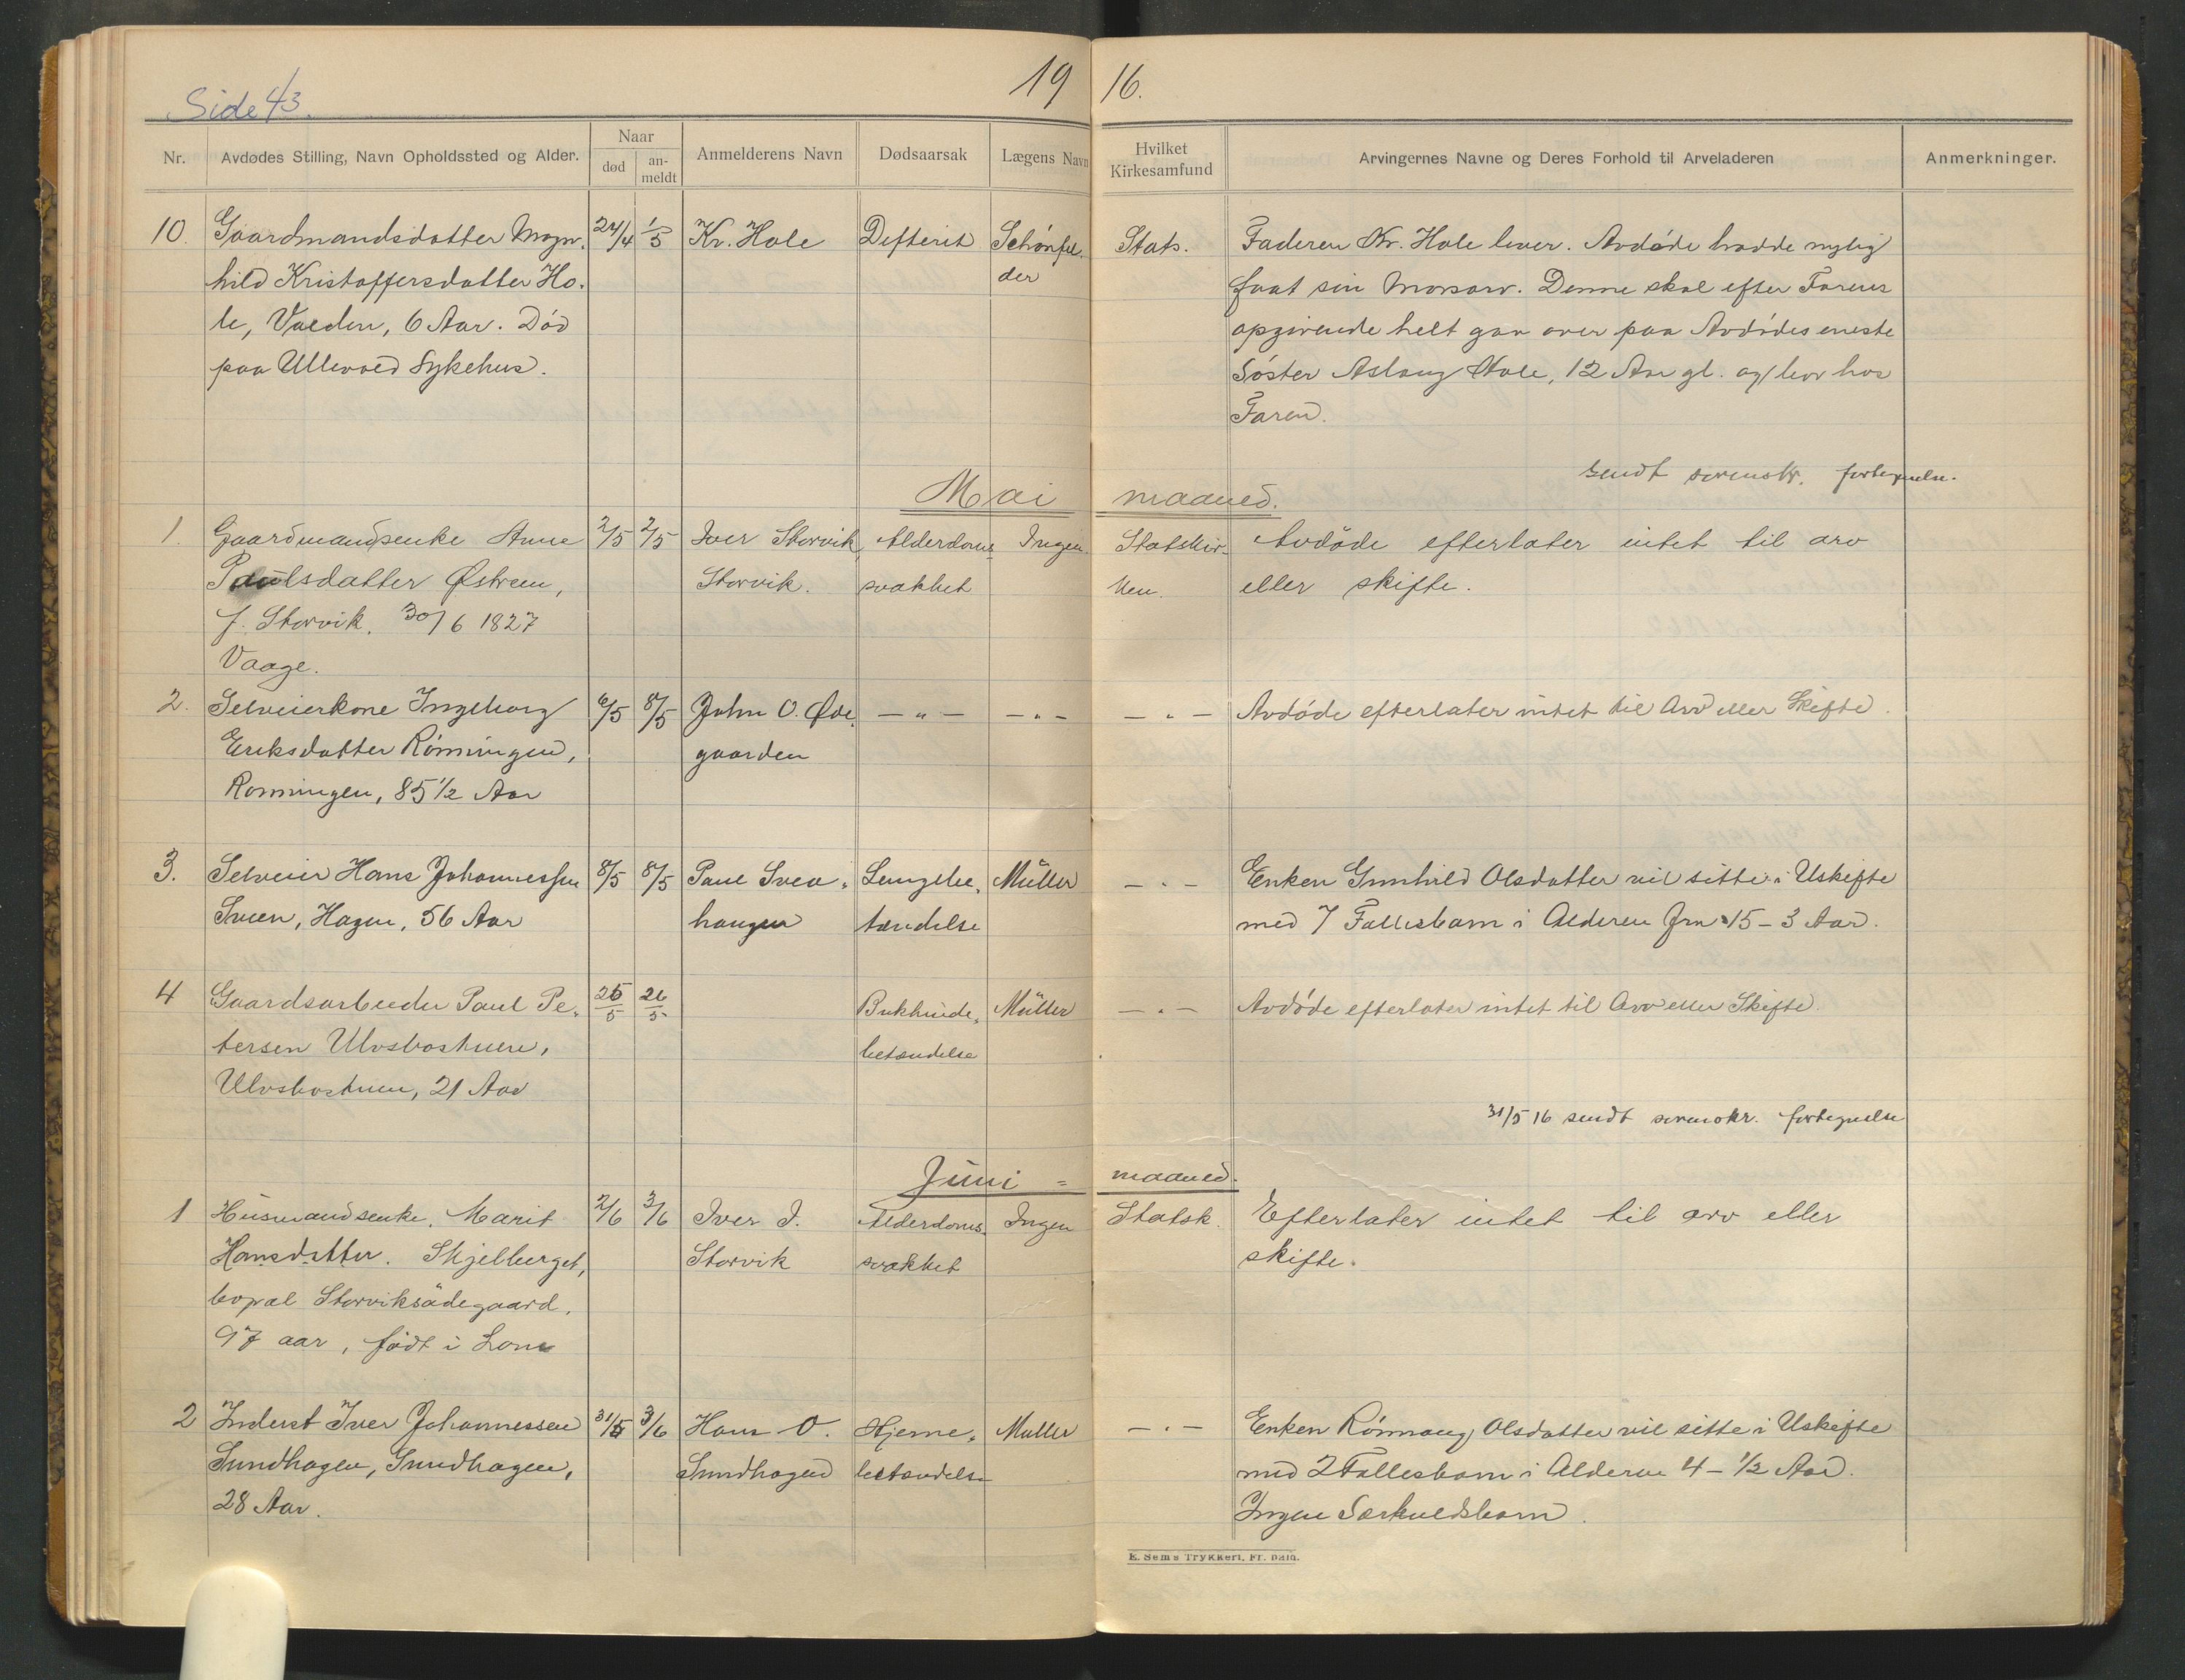 Side 43.
19 16.
Nr. Avdødes Stilling, Navn Opholdssted og Alder. Naar død an-meldt Anmelderens Navn Dødsaarsak Lægens Navn Hvilket Kirkesamfund Arvingernes Navne og Deres Forhold til Arveladeren Anmerkninger.
10. Gaardmandsdatter Magn- 24/4 1/5 Kr. Hole Defterit Schönfel- Stats. Faderen Kr. Hole lever. Avdøde hadde nylig
hild Kristoffersdatter Ho- der faat sin Morsarv. Denne skal efter Farens
le, Valden, 6 Aar. Död opgivende helt gaa over paa Avdödes eneste
paa Ullevold Sykehus. Söster Aslaug Hole, 12 Aar gl. og bor hos
Faren.
sendt sorenskr. fortegnelse.
Mai maaned.
1. Gaardmandsenke Anne 2/5 2/5 Iver Storvik Alderdoms Ingen Statskir- Avdöde efterlater intet til arv
Paulsdatter Østrem, Storvik. svakhet ken. eller skifte.
f. Storvik. 30/6 1827
Vaage.
2. Selveierkone Ingeborg 6/5 8/5 John O. Øde- — „ — — „ — — „ — Avdöde efterlater intet til Arv eller Skifte.
Eriksdatter Rönningen, gaarden
Rönningen, 85 1/2 Aar
3. Selveier Hans Johannessen 8/5 8/5 Paul Svea- Lungebe- Müller — „ — Enken Gunhild Olsdatter vil sitte i Uskifte
Sveen, Hagen, 56 Aar haugen tændelse med 7 Fællesbarn i Alderen fra 15 - 3 Aar.
4 Gaardsarbeider Paul Pe- 25/5 26/5 Bukhinde- Müller — „ — Avdöde efterlater intet til Arv eller Skifte.
tersen Ulvsbostuen, betændelse
Ulvsbostuen, 21 Aar
31/5 16 sendt sorenskr. fortegnelse
Juni - maaned.
1 Husmandsenke, Marit 2/6 3/6 Iver I. Alderdoms- Ingen Statsk. Efterlater intet til arv eller
Hansdatter. Skjelberget, Storvik svakhet skifte.
bopæl Storviksödegaard.
97 aar, födt i Lom
2 Inderst Iver Johannessen 31/5 3/6 Hans O. Hjerne- Müller — „ — Enken Rönnaug Olsdatter vil sitte i Uskifte
Sundhagen, Sundhagen, Sundhagen betændelse med 2 Fællesbarn i Alderen 4 - 1/2 Aar.
28 Aar. Ingen Særkuldsbarn.
E. Sem's Trykkeri, Fr. hald.